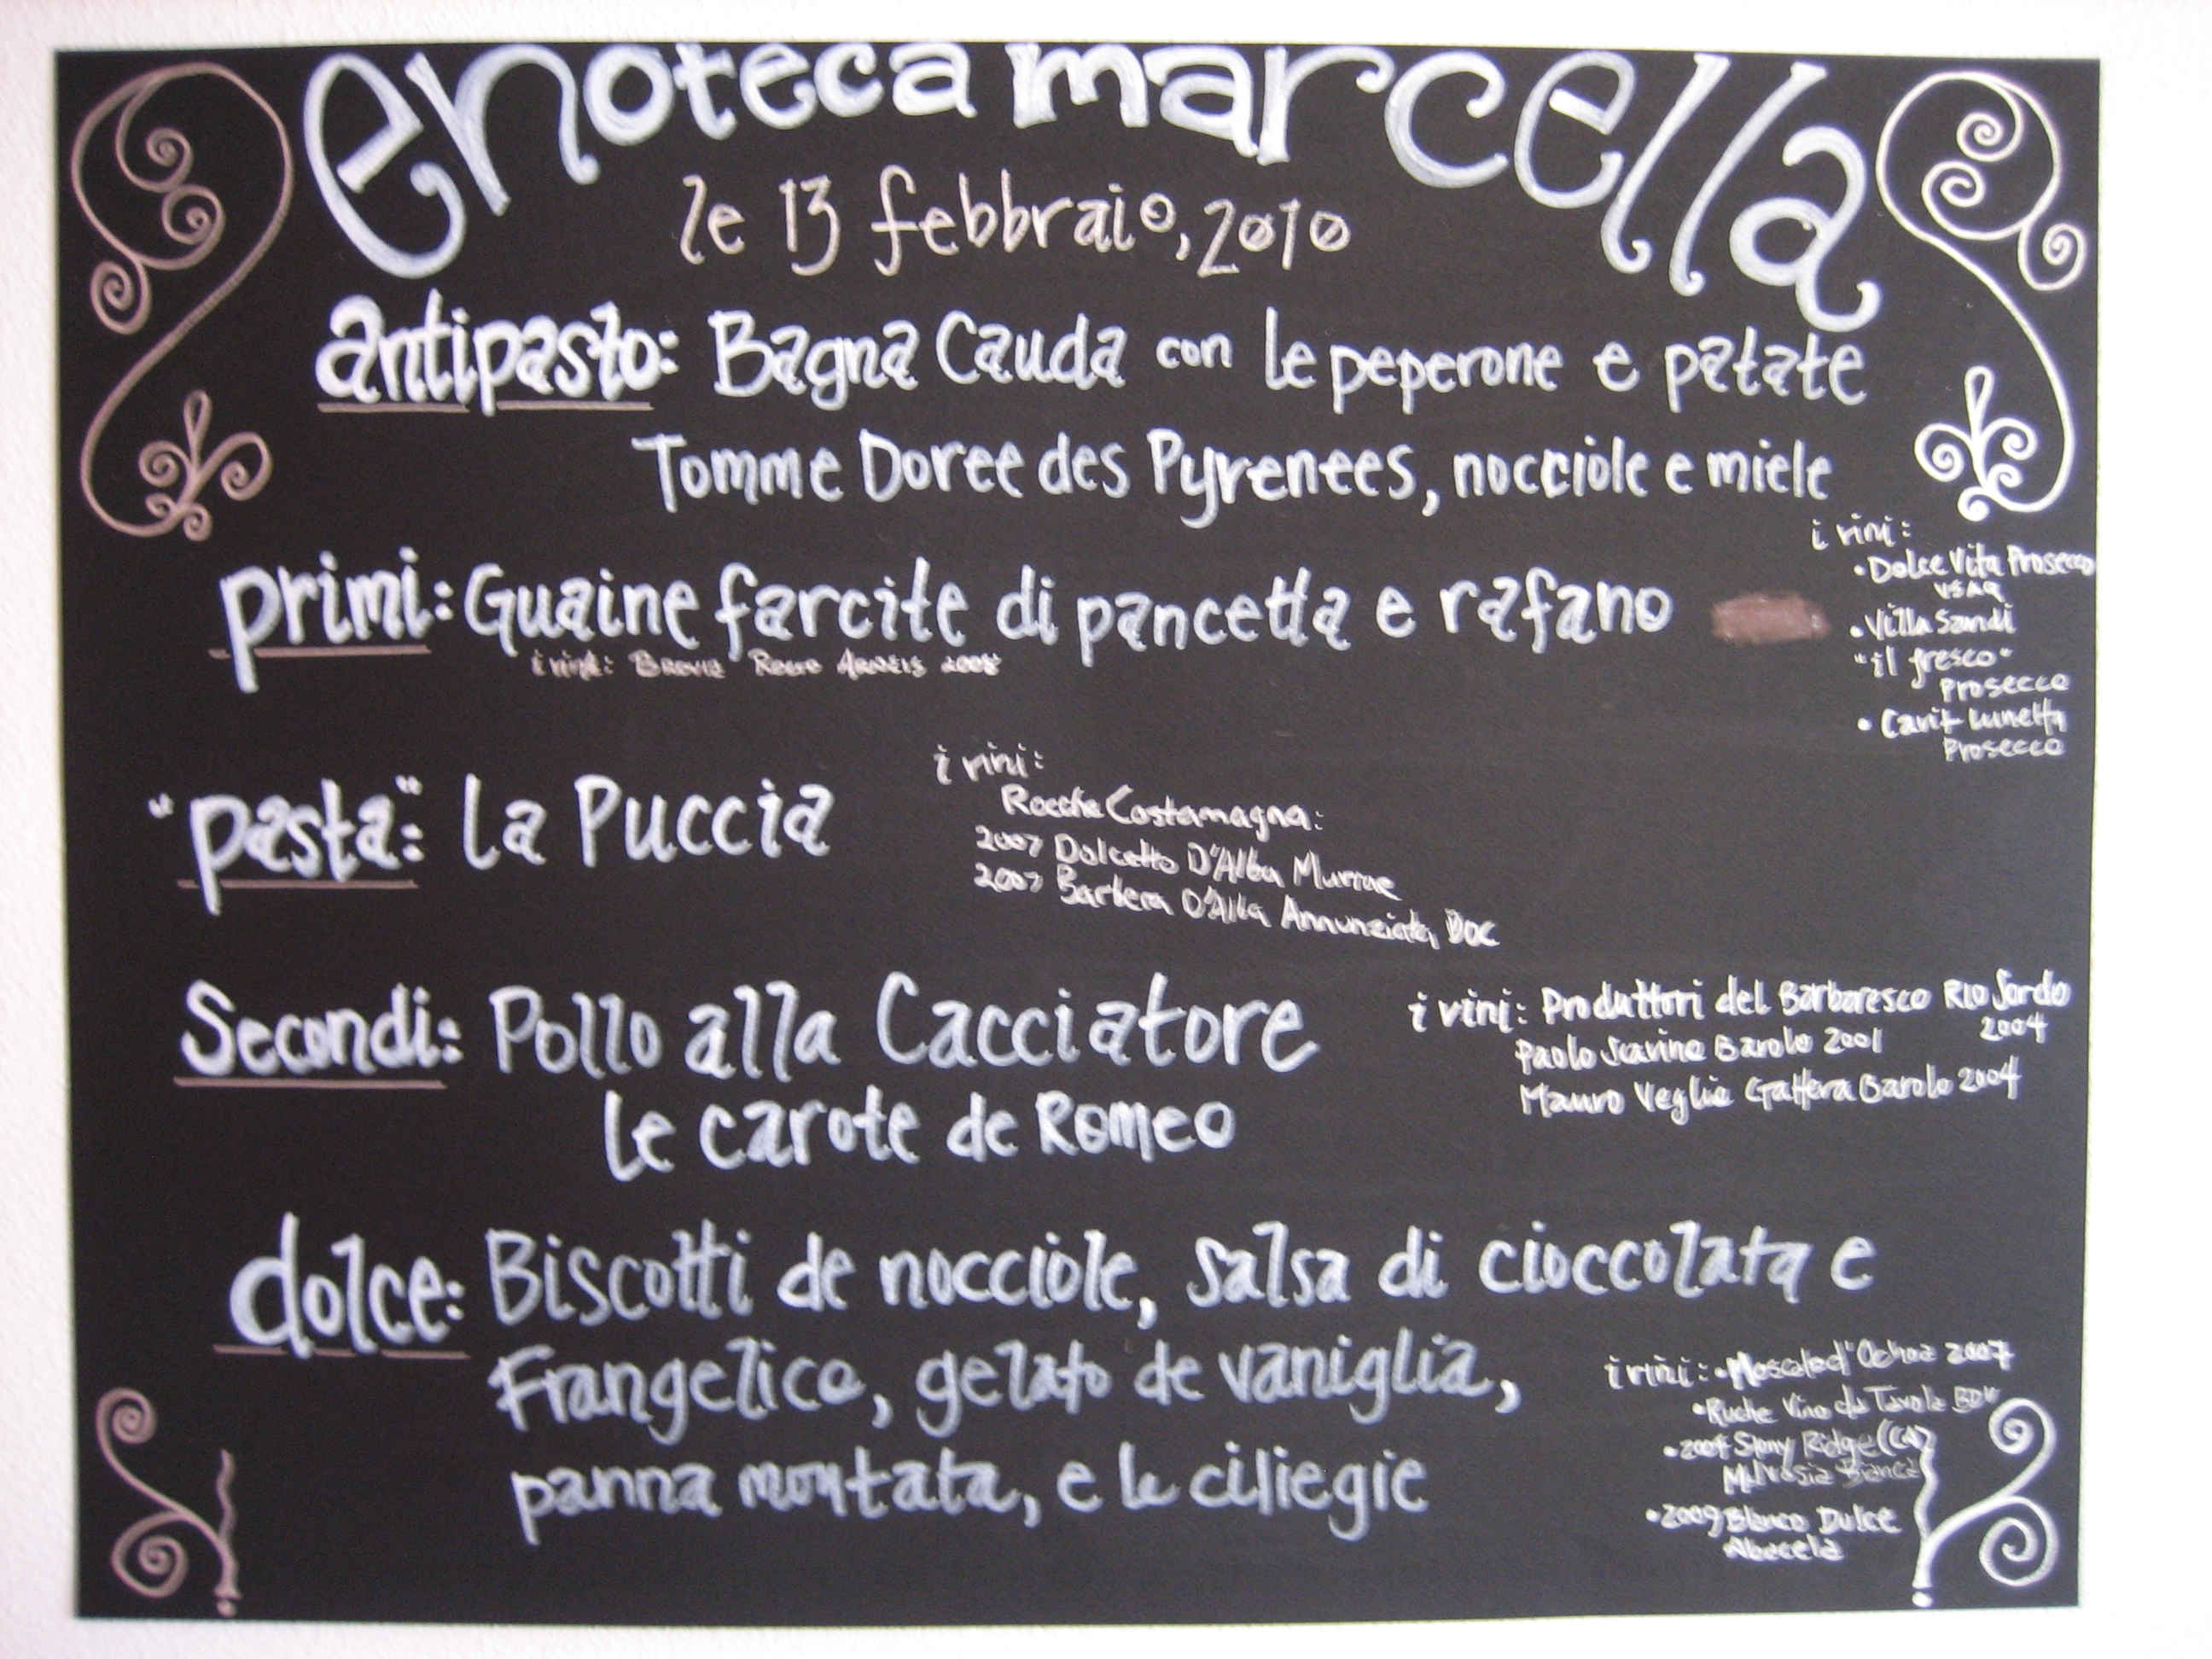 enoteca marcella
le 13 febbraio, 2010
antipasto: Bagna Cauda con le peperone e patate
Tomme Doree des Pyrenees, nocciole e miele
i vini:
• Dolce Vita Prosecco
VSAQ
• Villa Sandi
"il fresco"
Prosecco
• Cavit Lunetta
Prosecco
primi: Guaine farcite di pancetta e rafano
i vini: Arneis 2008
"pasta": La Puccia
i vini:
Rocche Costamagna:
2007 Dolcetto D'Alba Murrae
2007 Barbera D'Alba Annunziata, DOC
Secondi: Pollo alla Cacciatore
le carote de Romeo
i vini: Produttori del Barbaresco Rio Sordo
2004
Paolo Scavino Barolo 2001
Mauro Veglio Gattera Barolo 2004
dolce: Biscotti de nocciole, salsa di cioccolata e
Frangelico, gelato de vaniglia,
panna montata, e le ciliegie
i vini: • Moscato d'Ochoa 2007
• Ruche Vino da Tavola
• Stony Ridge (CA)
Malvasia Bianca
• 2009 Blanco Dulce
Abacela